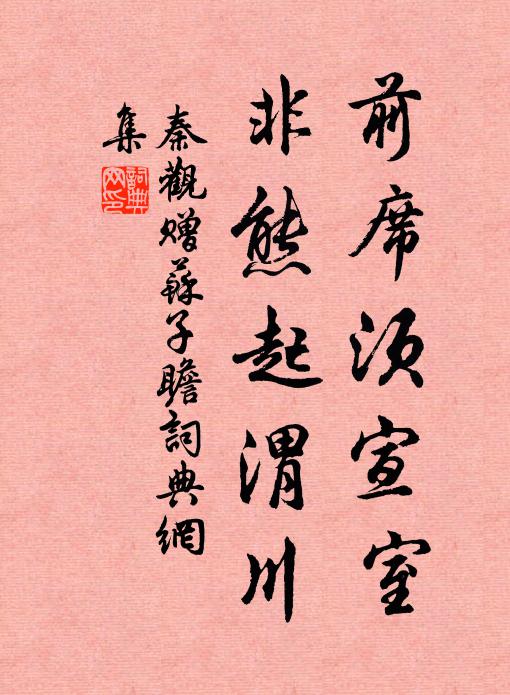 前席須宣室
非熊起渭川
秦觀贈蘇子瞻詞典網
集
詞典網印